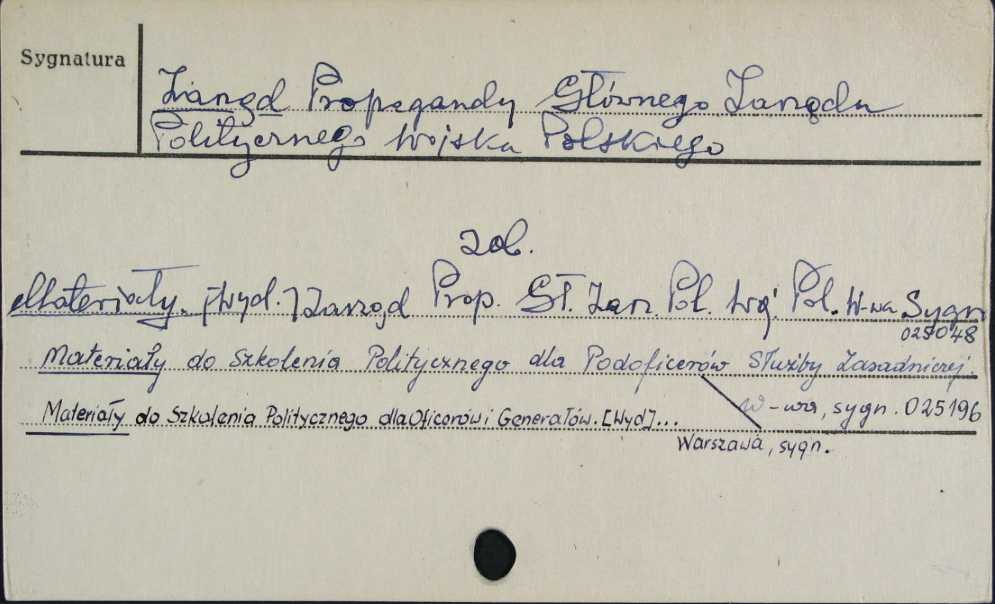 Sygnatura
Zarząd Propagandy Głównego Zarządu
Politycznego Wojska Polskiego
zob.
Materiały. [Wyd.] Zarząd Prop. Gł. Zarz. Pol. Woj. Pol. W-wa Sygn
025048
Materiały do Szkolenia Politycznego dla Podoficerów Służby Zasadniczej.
W-wa, sygn. 025196
Materiały do Szkolenia Politycznego dla Oficerów i Generałów. [Wyd]...
Warszawa, sygn.